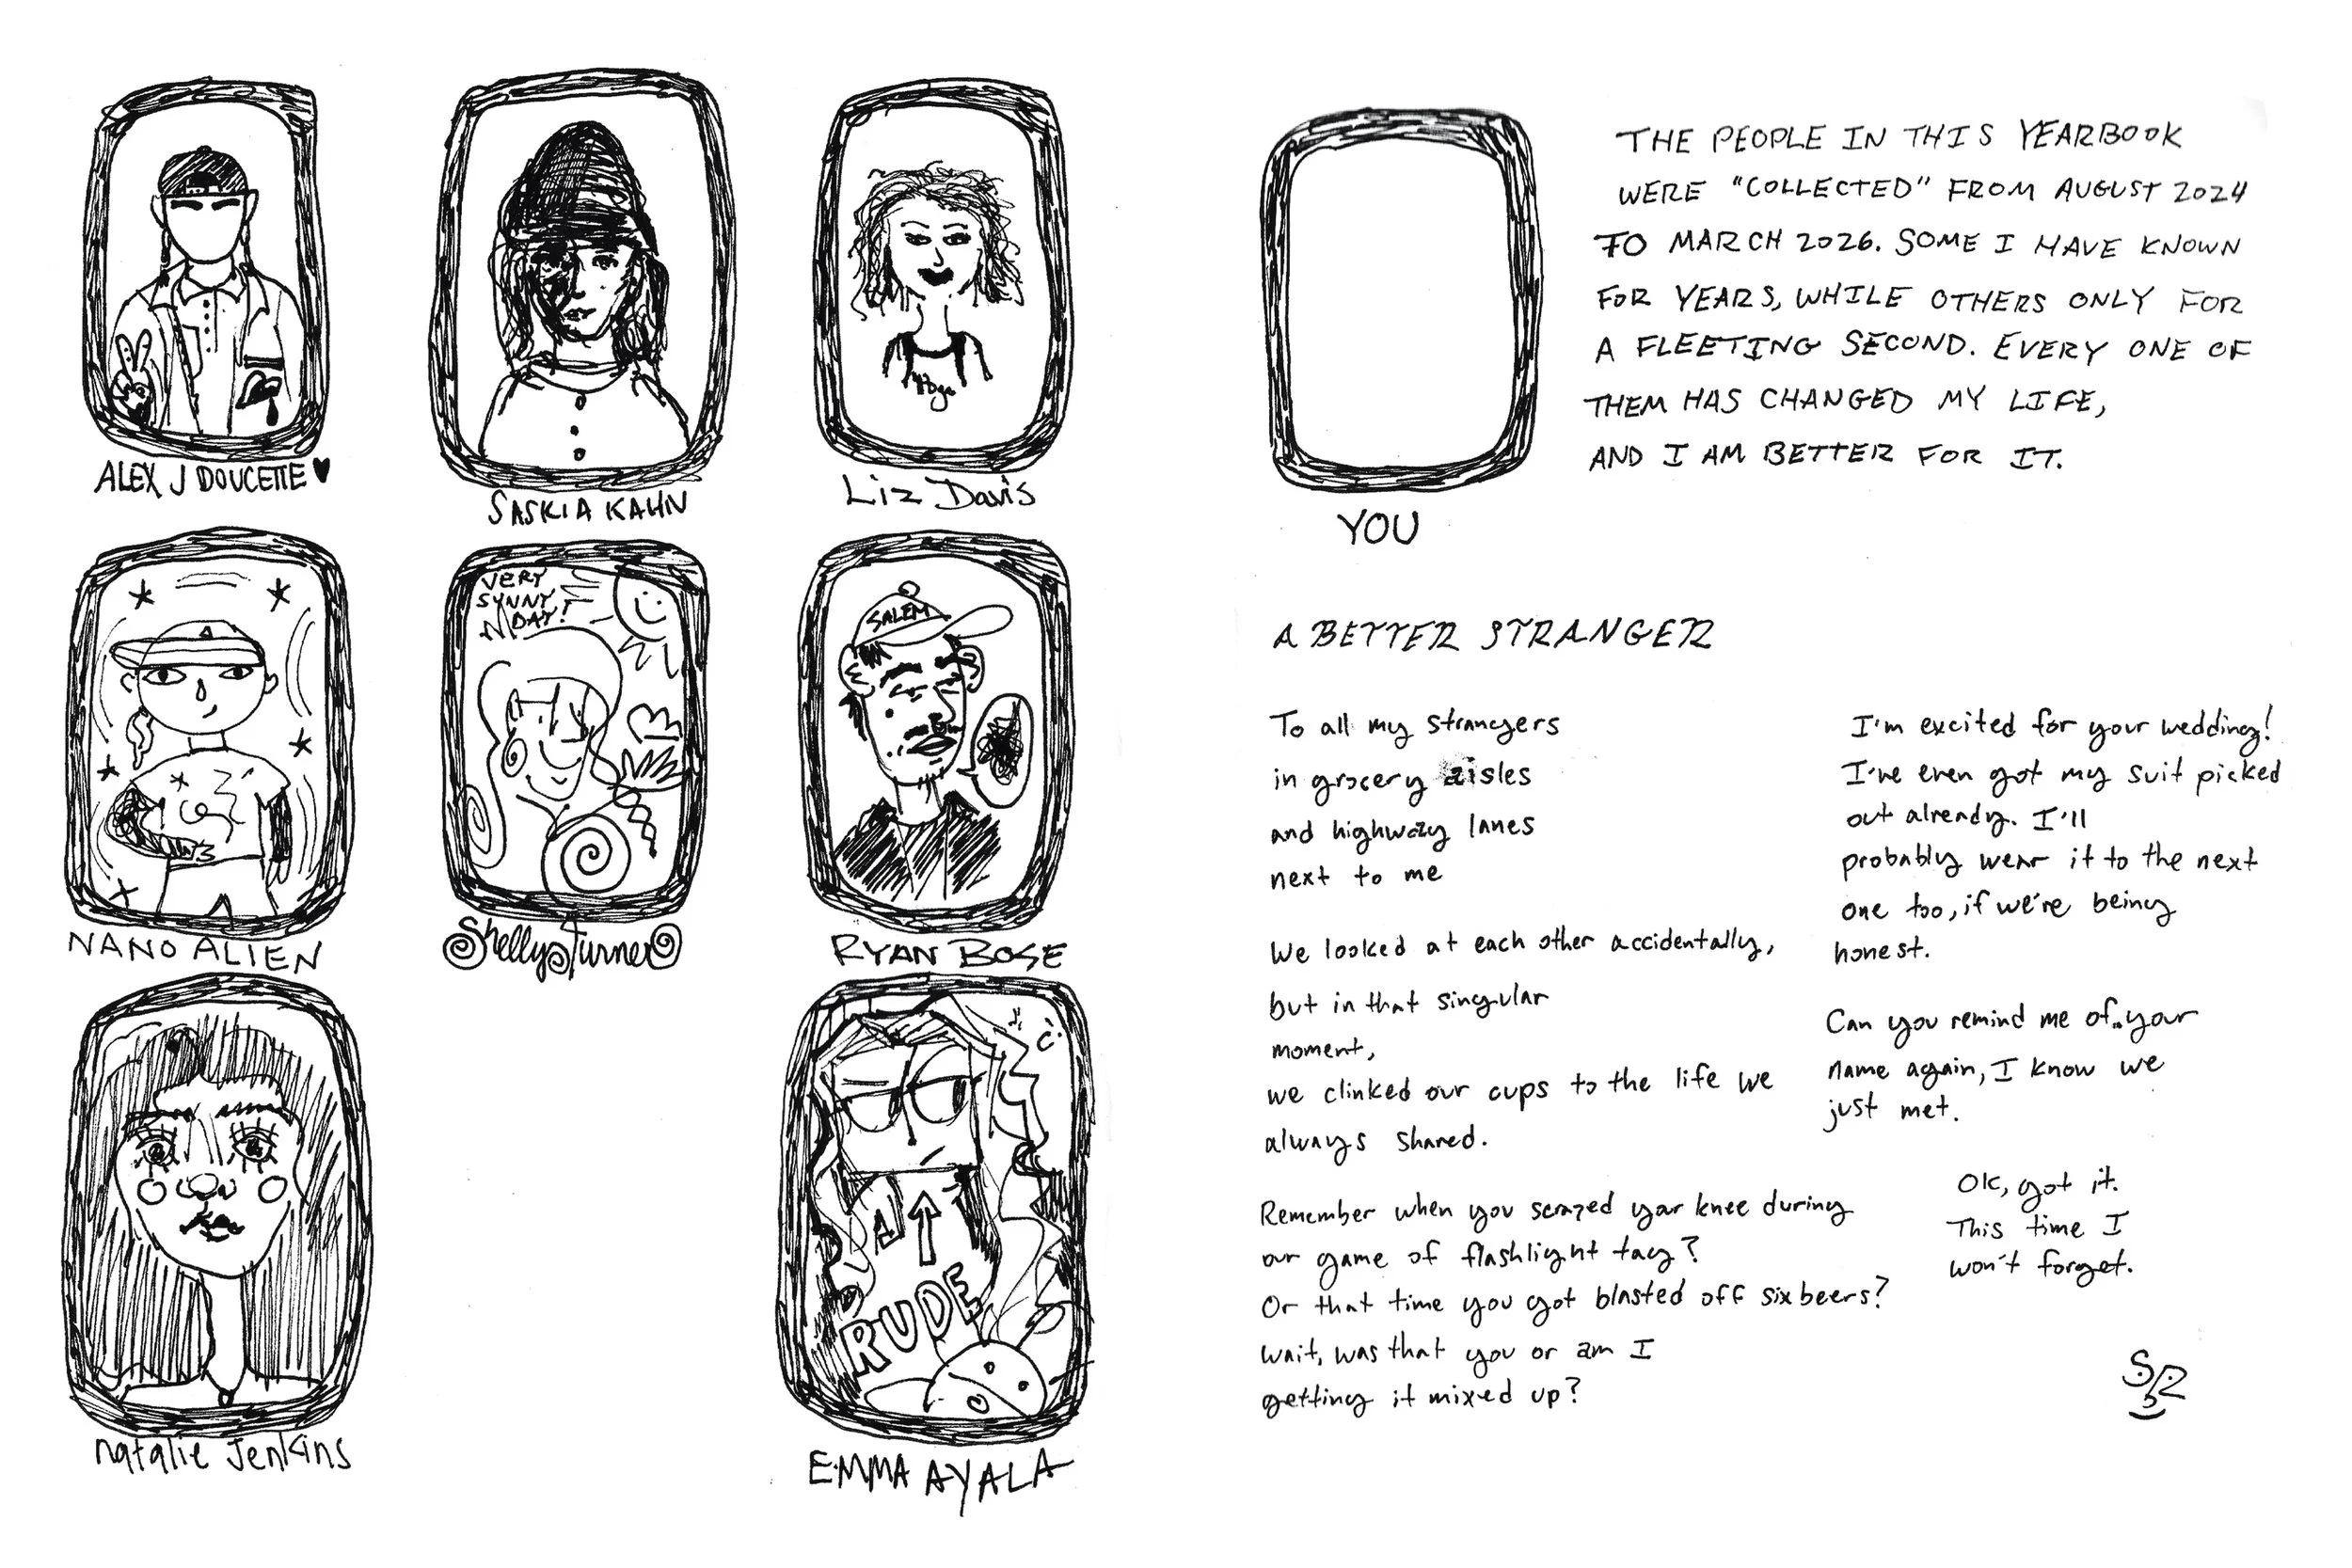 ALEX J DOUCETTE
SASKIA KAHN
Liz Davis
Yoga
NANO ALIEN
VERY
SUNNY
DAY!
Shelly Turner
SALEM
RYAN BOSE
natalie Jenkins
A
RUDE
EMMA AYALA
YOU
THE PEOPLE IN THIS YEARBOOK
WERE "COLLECTED" FROM AUGUST 2024
TO MARCH 2026. SOME I HAVE KNOWN
FOR YEARS, WHILE OTHERS ONLY FOR
A FLEETING SECOND. EVERY ONE OF
THEM HAS CHANGED MY LIFE,
AND I AM BETTER FOR IT.
A BETTER STRANGER
To all my strangers
in grocery aisles
and highway lanes
next to me
We looked at each other accidentally,
but in that singular
moment,
we clinked our cups to the life we
always shared.
Remember when you scraped your knee during
our game of flashlight tag?
Or that time you got blasted off six beers?
wait, was that you or am I
getting it mixed up?
I'm excited for your wedding!
I've even got my suit picked
out already. I'll
probably wear it to the next
one too, if we're being
honest.
Can you remind me of your
name again, I know we
just met.
Ok, got it.
This time I
won't forget.